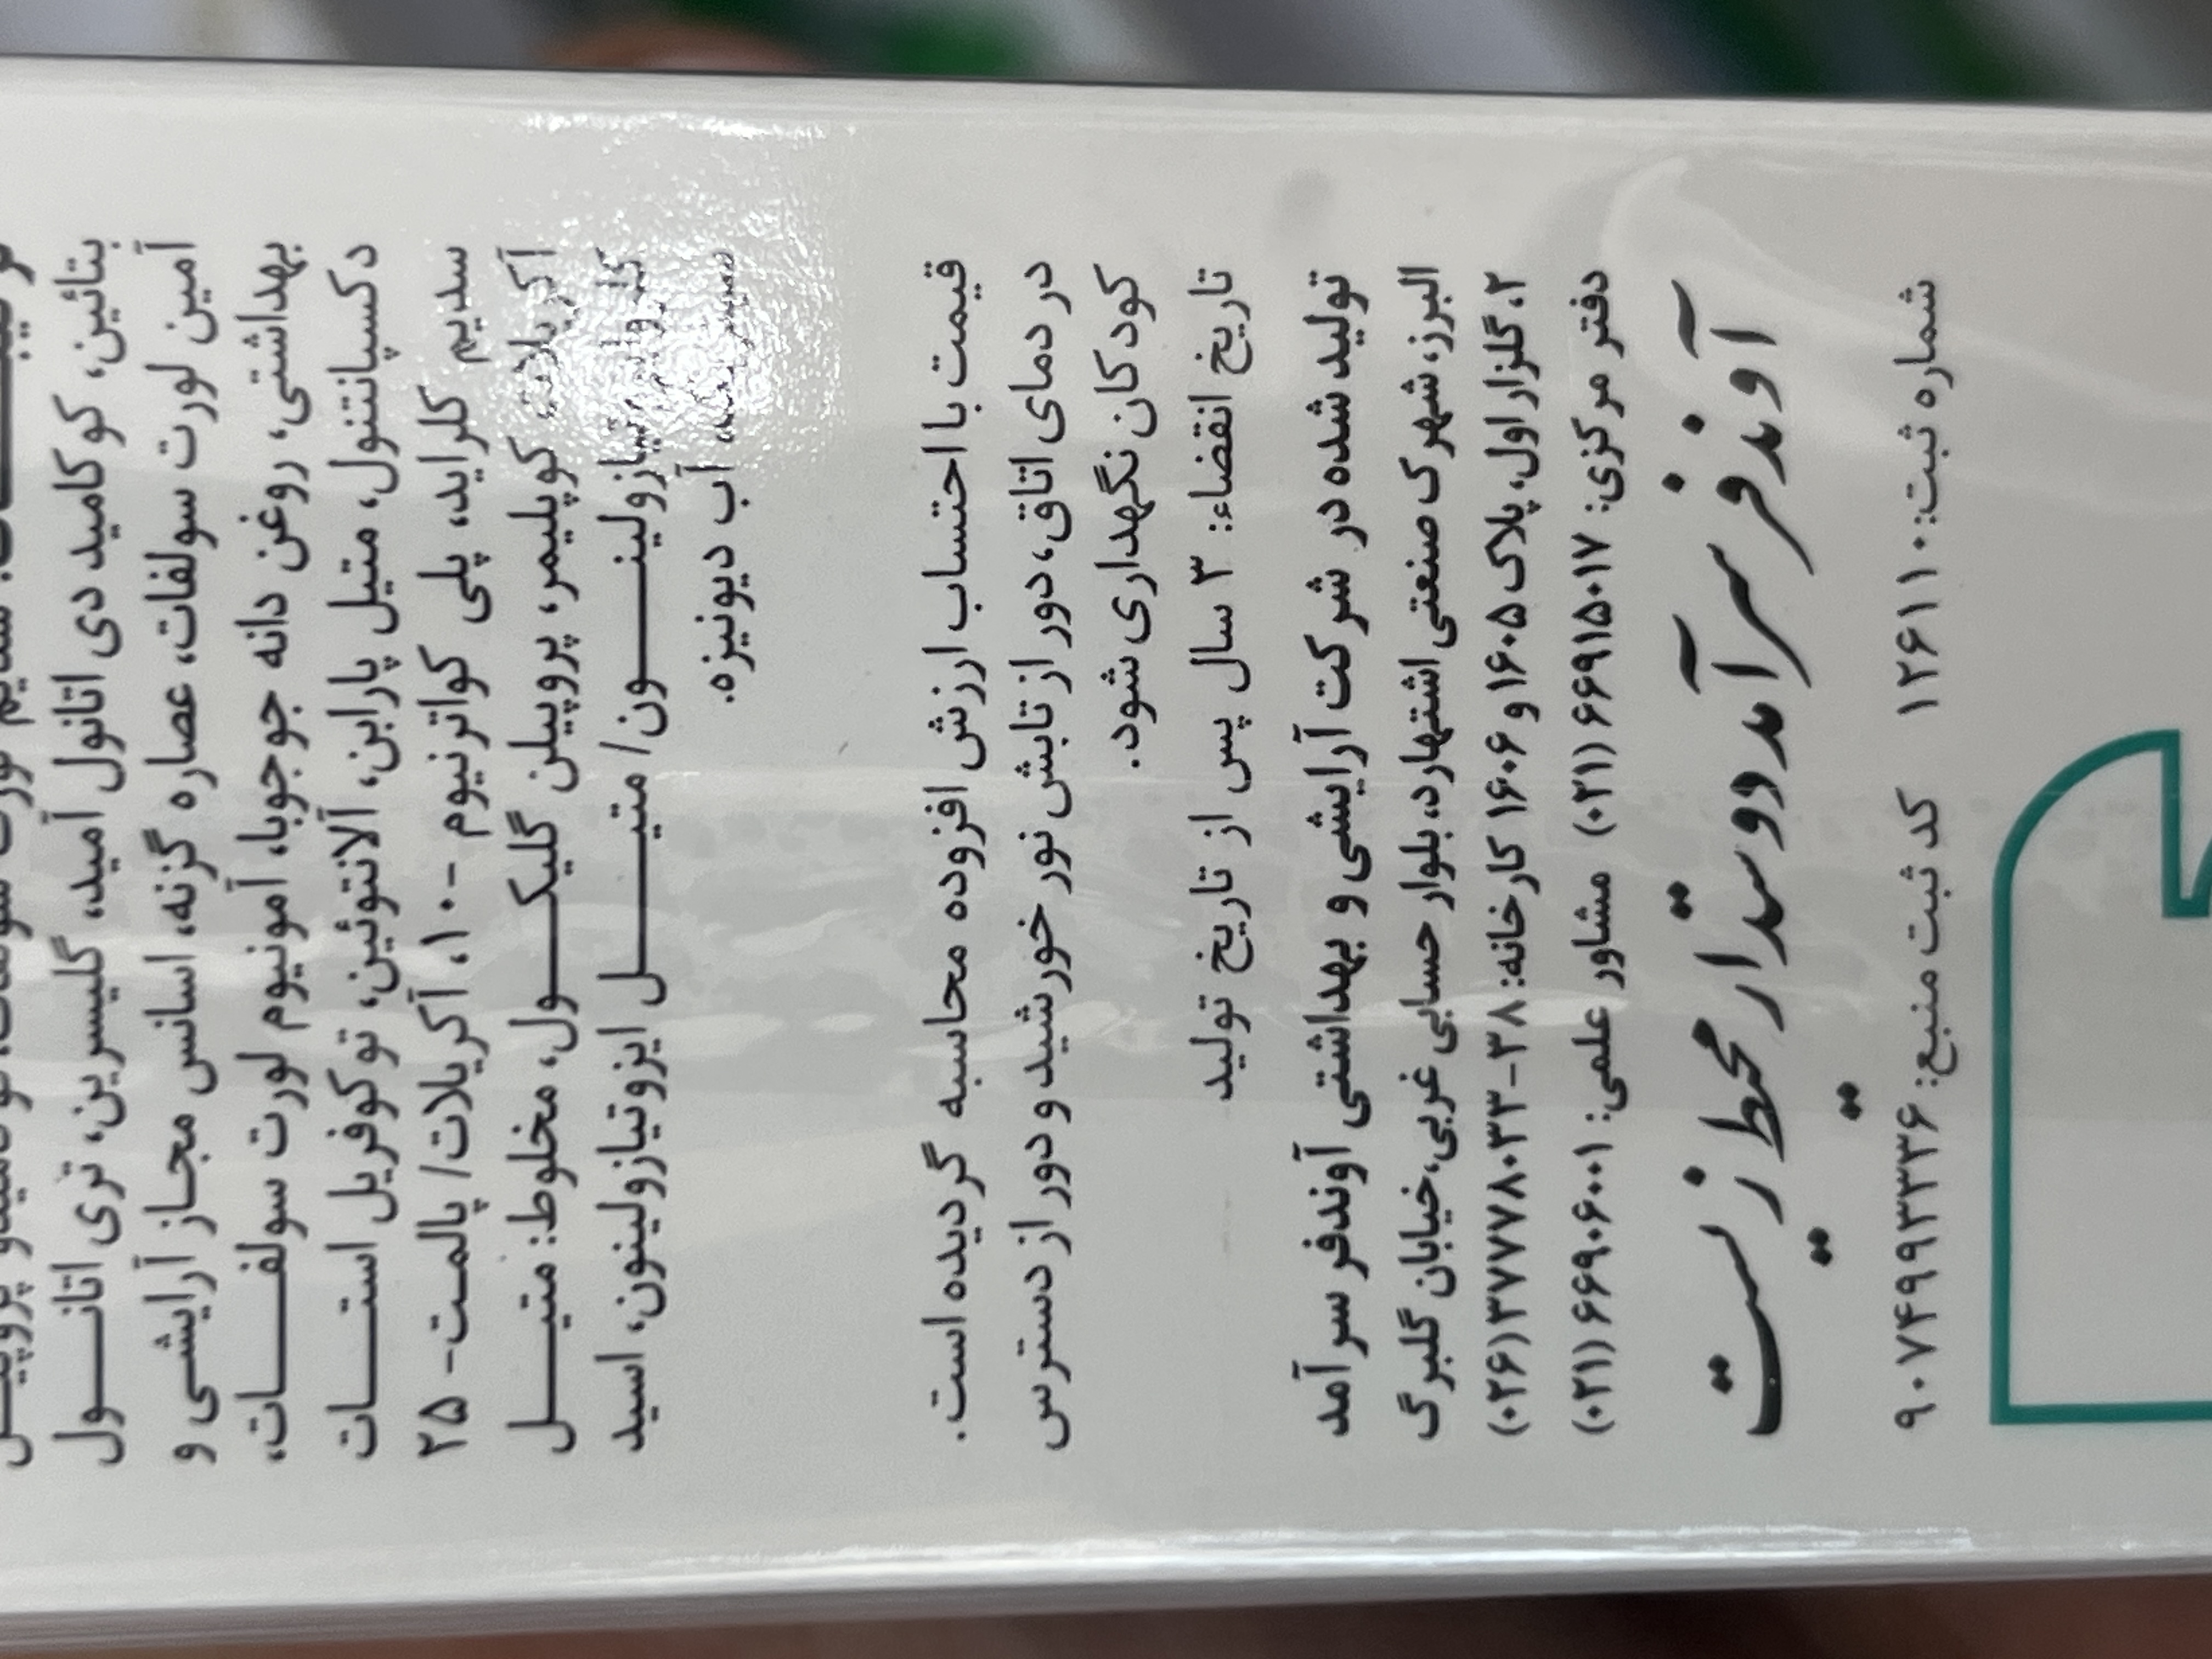 بتائین، کوکامید دی اتانول آمید، گلیسرین، تری اتانول
آمین لورت سولفات، عصاره گزنه، اسانس مجاز آرایشی و
بهداشتی، روغن دانه جوجوبا، آمونیوم لورت سولفات،
دکسپانتنول، متیل پارابن، آلانتوئین، توکوفریل استات
سدیم کلراید، پلی کواترنیوم -۱۰، آکریلات/ پالمت- ۲۵
آکریلات کوپلیمر، پروپیلن گلیکول، مخلوط: متیل
کلروایزوتیازولینون/ متیل ایزوتیازولینون، اسید
آب دیونیزه.
قیمت با احتساب ارزش افزوده محاسبه گردیده است.
در دمای اتاق، دور از تابش نور خورشید و دور از دسترس
کودکان نگهداری شود.
تاریخ انقضاء: ۳ سال پس از تاریخ تولید
تولید شده در شرکت آرایشی و بهداشتی آوندفر سرآمد
البرز، شهرک صنعتی اشتهارد، بلوار حسابی غربی، خیابان گلبرگ
۲، گلزار اول، پلاک ۱۶۰۵ و ۱۶۰۶ کارخانه: ۳۸-۳۷۷۷۸۰۳۳ (۰۲۶)
دفتر مرکزی: ۶۶۹۱۵۰۱۷ (۰۲۱) مشاور علمی: ۶۶۹۰۶۰۰۱ (۰۲۱)
آوندفر سرآمد دوستدار محیط زیست
شماره ثبت: ۱۲۶۱۱۰ کد ثبت منبع: ۹۰۷۴۹۹۳۳۳۶